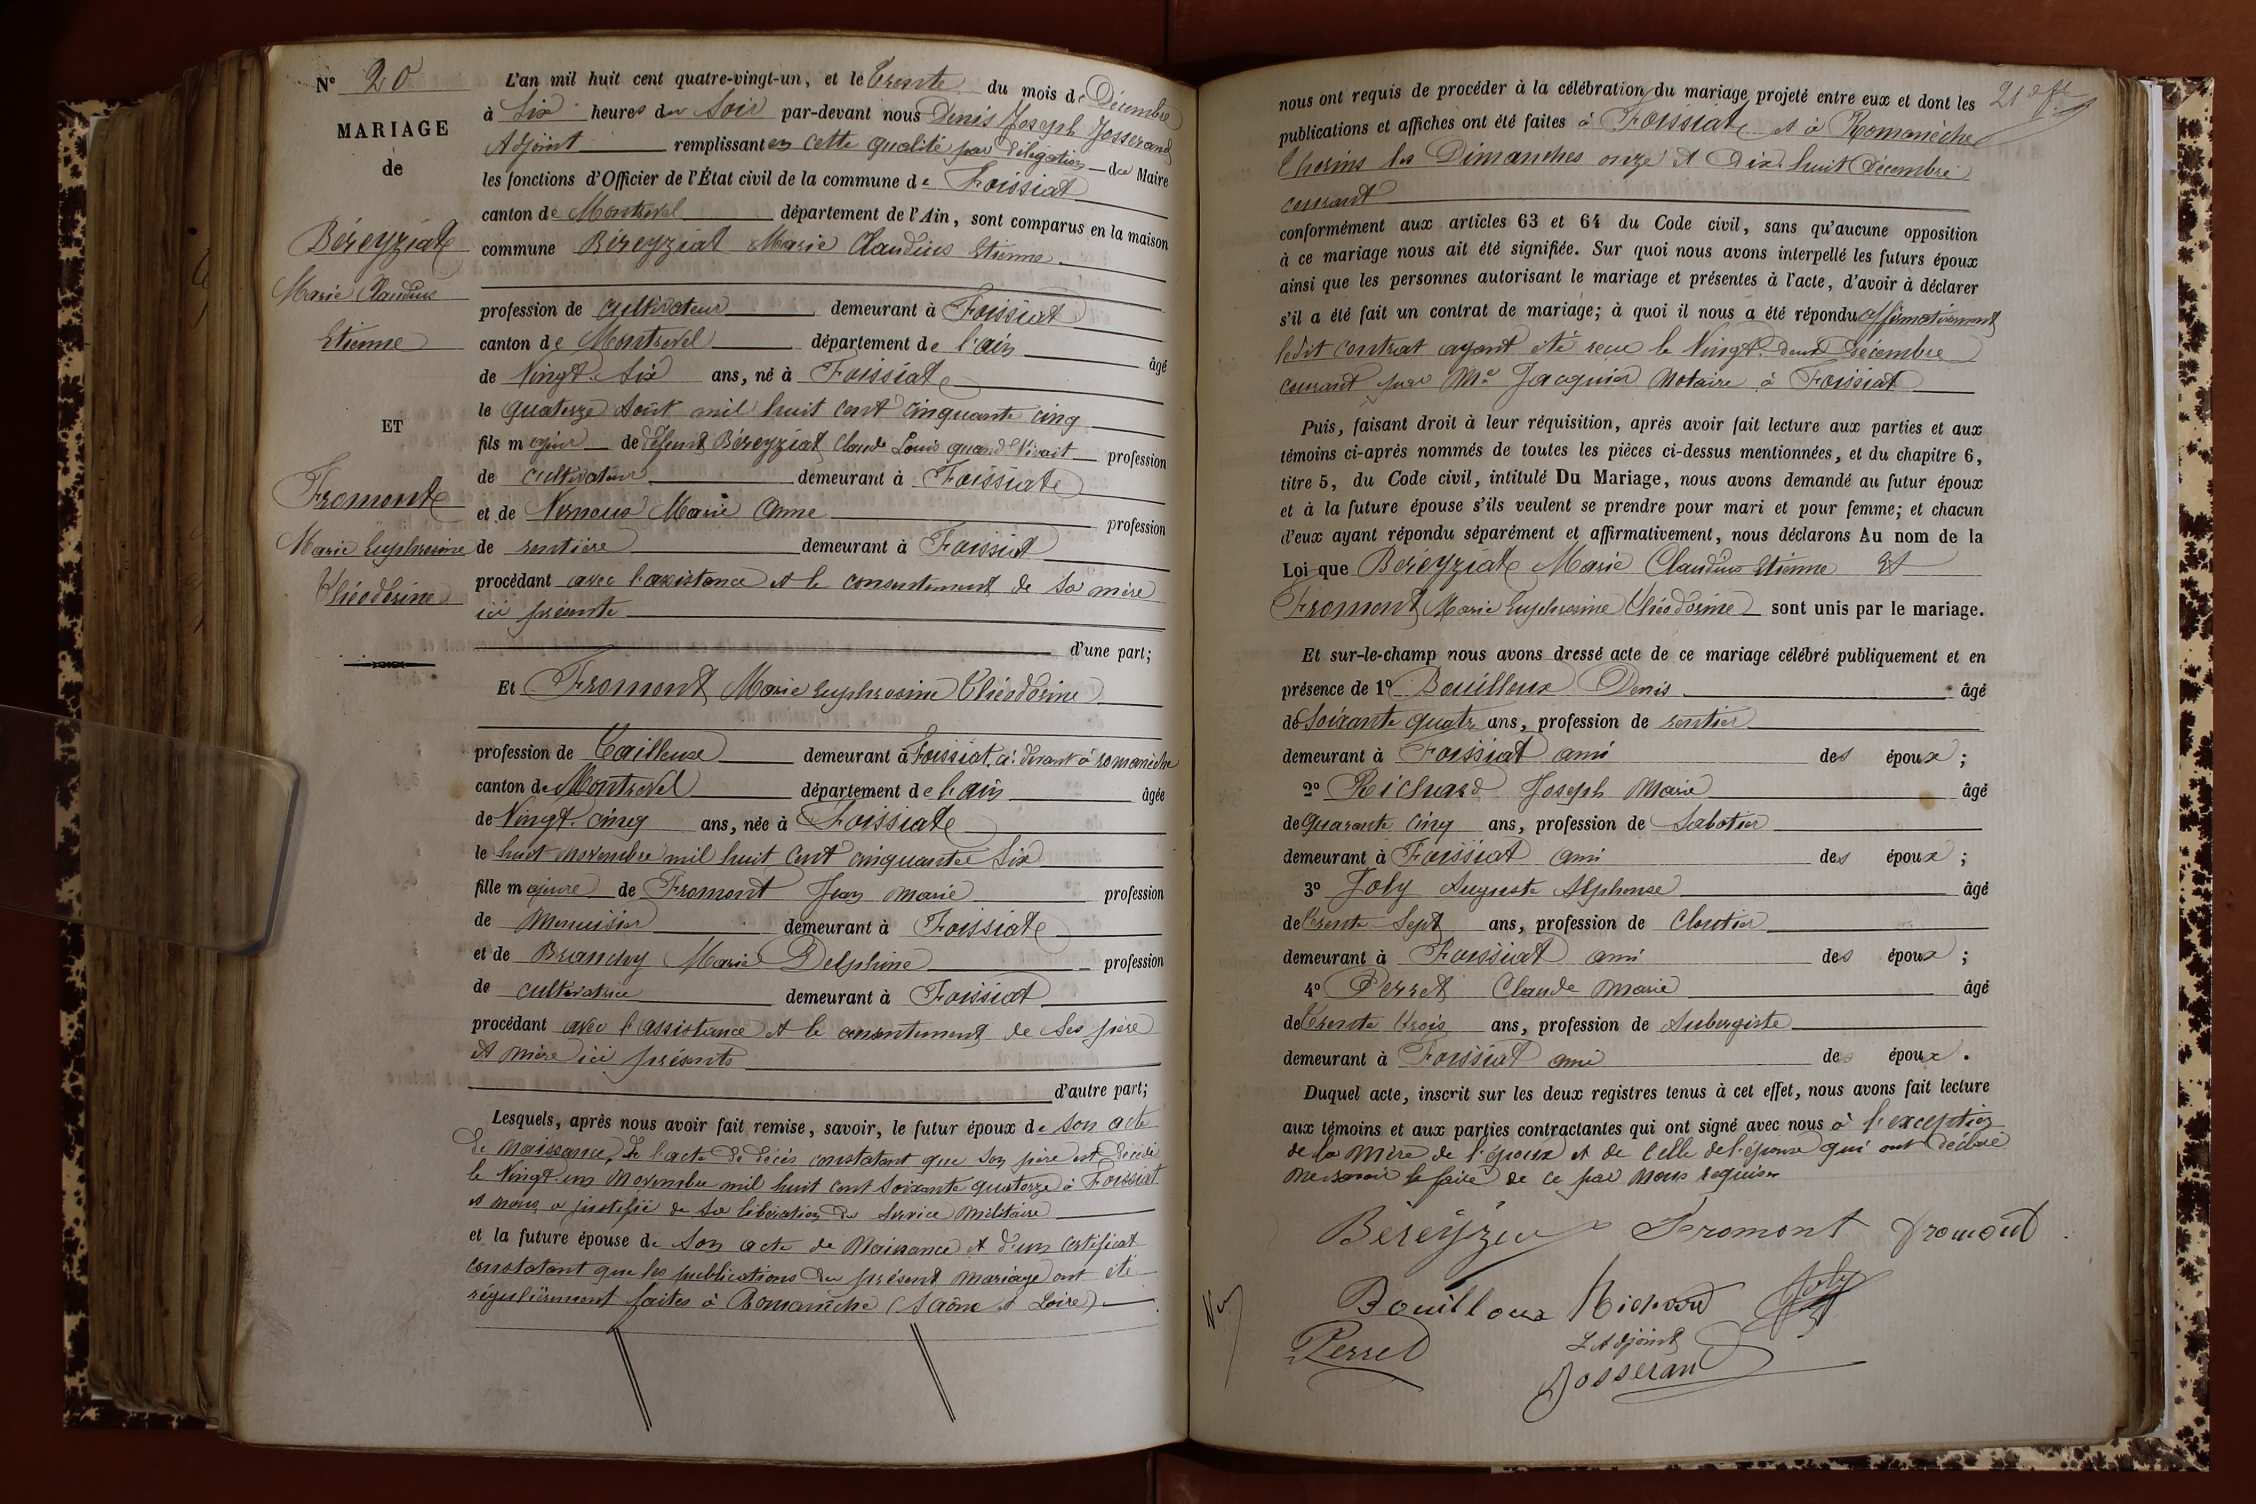 N° 20
MARIAGE
de
Béreyziat
Marie Claudius
Etienne
ET
Fromont
Marie Euphrosine
Théodorine
L'an mil huit cent quatre-vingt-un, et le Trente du mois de Décembre
à Six heures du Soir par-devant nous Denis Joseph Josserand
Adjoint remplissant en cette qualité par délégation du Maire
les fonctions d'Officier de l'État civil de la commune de Foissiat
canton de Montrevel département de l'Ain, sont comparus en la maison
commune Béreyziat Marie Claudius Etienne
profession de cultivateur demeurant à Foissiat
canton de Montrevel département de l'ain âgé
de Vingt-Six ans, né à Foissiat
le quatorze Août mil huit cent cinquante cinq
fils majeur de défunt Béreyziat Claude Louis quand Vivait profession
de cultivateur demeurant à Foissiat
et de Marie Anne profession
de rentière demeurant à Foissiat
procédant avec l'assistance et le consentement de sa mère
ici présente
d'une part;
Et Fromont Marie Euphrosine Théodorine
profession de Tailleuse demeurant à Foissiat, ci-devant à romanèche
canton de Montrevel département de l'ain âgée
de Vingt-cinq ans, née à Foissiat
le huit novembre mil huit cent cinquante Six
fille majeure de Fromont Jean Marie profession
de Menuisier demeurant à Foissiat
et de Branchy Marie Delphine profession
de cultivatrice demeurant à Foissiat
procédant avec l'assistance et le consentement de Ses père
et mère ici présents
d'autre part;
Lesquels, après nous avoir fait remise, savoir, le futur époux de son acte
de naissance, de l'acte de décès constatant que son père est décédé
le Vingt-un Novembre mil huit cent soixante quatorze à Foissiat
et nous a justifié de sa libération du Service Militaire
et la future épouse de son acte de Naissance et d'un certificat
constatant que les publications du présent mariage ont été
régulièrement faites à Romanèche (Saône et Loire)
21e ft
nous ont requis de procéder à la célébration du mariage projeté entre eux et dont les
publications et affiches ont été faites à Foissiat et à Romanèche
Thorins les Dimanches onze et Dix-huit Décembre
courant
conformément aux articles 63 et 64 du Code civil, sans qu'aucune opposition
à ce mariage nous ait été signifiée. Sur quoi nous avons interpellé les futurs époux
ainsi que les personnes autorisant le mariage et présentes à l'acte, d'avoir à déclarer
s'il a été fait un contrat de mariage; à quoi il nous a été répondu affirmativement
ledit contrat ayant été recu le Vingt-deux Décembre
courant par Me Jacquier Notaire à Foissiat
Puis, faisant droit à leur réquisition, après avoir fait lecture aux parties et aux
témoins ci-après nommés de toutes les pièces ci-dessus mentionnées, et du chapitre 6,
titre 5, du Code civil, intitulé Du Mariage, nous avons demandé au futur époux
et à la future épouse s'ils veulent se prendre pour mari et pour femme; et chacun
d'eux ayant répondu séparément et affirmativement, nous déclarons Au nom de la
Loi que Béréyziat Marie Claudius Etienne Et
Fromont Marie Euphrosine Théodorine sont unis par le mariage.
Et sur-le-champ nous avons dressé acte de ce mariage célébré publiquement et en
présence de 1° Bouilloux Denis âgé
de Soixante quatre ans, profession de rentier
demeurant à Foissiat ami des époux;
2° Richard Joseph Marie âgé
de quarante cinq ans, profession de Sabotier
demeurant à Foissiat ami des époux;
3° Joly Auguste Alphonse âgé
de Trente-Sept ans, profession de Cloutier
demeurant à Foissiat ami des époux;
4° Perret Claude Marie âgé
de Trente trois ans, profession de Aubergiste
demeurant à Foissiat ami des époux.
Duquel acte, inscrit sur les deux registres tenus à cet effet, nous avons fait lecture
aux témoins et aux parties contractantes qui ont signé avec nous à l'exception
de la Mère de l'époux et de Celle de l'épouse qui ont déclaré
ne savoir le faire de ce par Nous requises
Béreyziat Fromont Fromont
Bouilloux Richard Joly
Perret L'Adjoint
Josserand